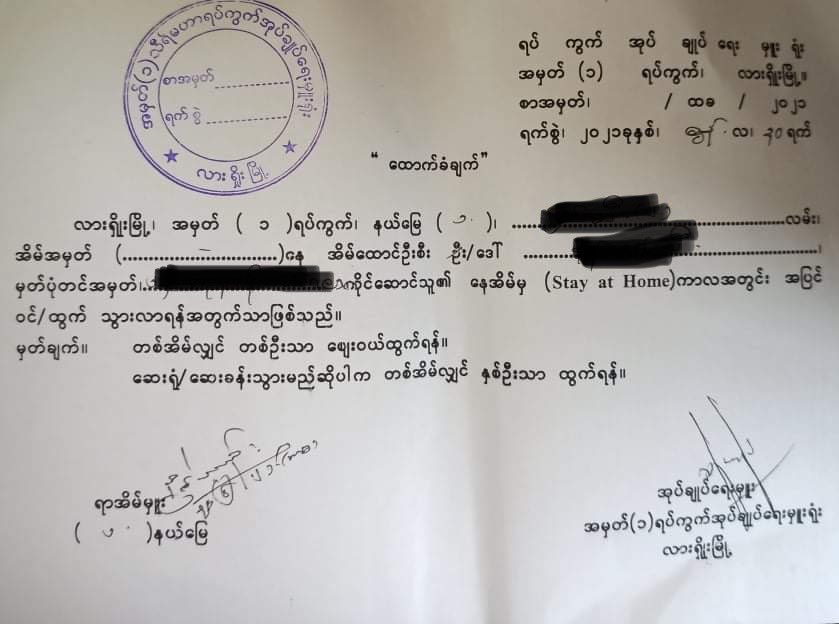 အမှတ်(၁)
ရပ်ကွက်အုပ်ချုပ်ရေးမှူးရုံး
စာအမှတ်
ရက်စွဲ
လားရှိုးမြို့
ရပ် ကွက် အုပ် ချုပ် ရေး မှူး ရုံး
အမှတ် (၁) ရပ်ကွက်၊ လားရှိုးမြို့။
စာအမှတ်၊ / ထခ / ၂၀၂၁
ရက်စွဲ၊ ၂၀၂၁ခုနှစ်၊ ဇွန် လ၊ ၃၀ ရက်
“ ထောက်ခံချက်”
လားရှိုးမြို့၊ အမှတ် ( ၁ )ရပ်ကွက်၊ နယ်မြေ ( ၂ )၊ လမ်း၊
အိမ်အမှတ် ( )နေ အိမ်ထောင်ဦးစီး ဦး/ဒေါ် ၊
မှတ်ပုံတင်အမှတ်၊ ကိုင်ဆောင်သူ၏ နေအိမ်မှ (Stay at Home)ကာလအတွင်း အပြင်
ဝင်/ထွက် သွားလာရန်အတွက်သာဖြစ်သည်။
မှတ်ချက်။ တစ်အိမ်လျှင် တစ်ဦးသာ ဈေးဝယ်ထွက်ရန်။
ဆေးရုံ/ဆေးခန်းသွားမည်ဆိုပါက တစ်အိမ်လျှင် နှစ်ဦးသာ ထွက်ရန်။
ရာအိမ်မှူး
( ၂ )နယ်မြေ
အုပ်ချုပ်ရေးမှူး
အမှတ်(၁)ရပ်ကွက်အုပ်ချုပ်ရေးမှူးရုံး
လားရှိုးမြို့